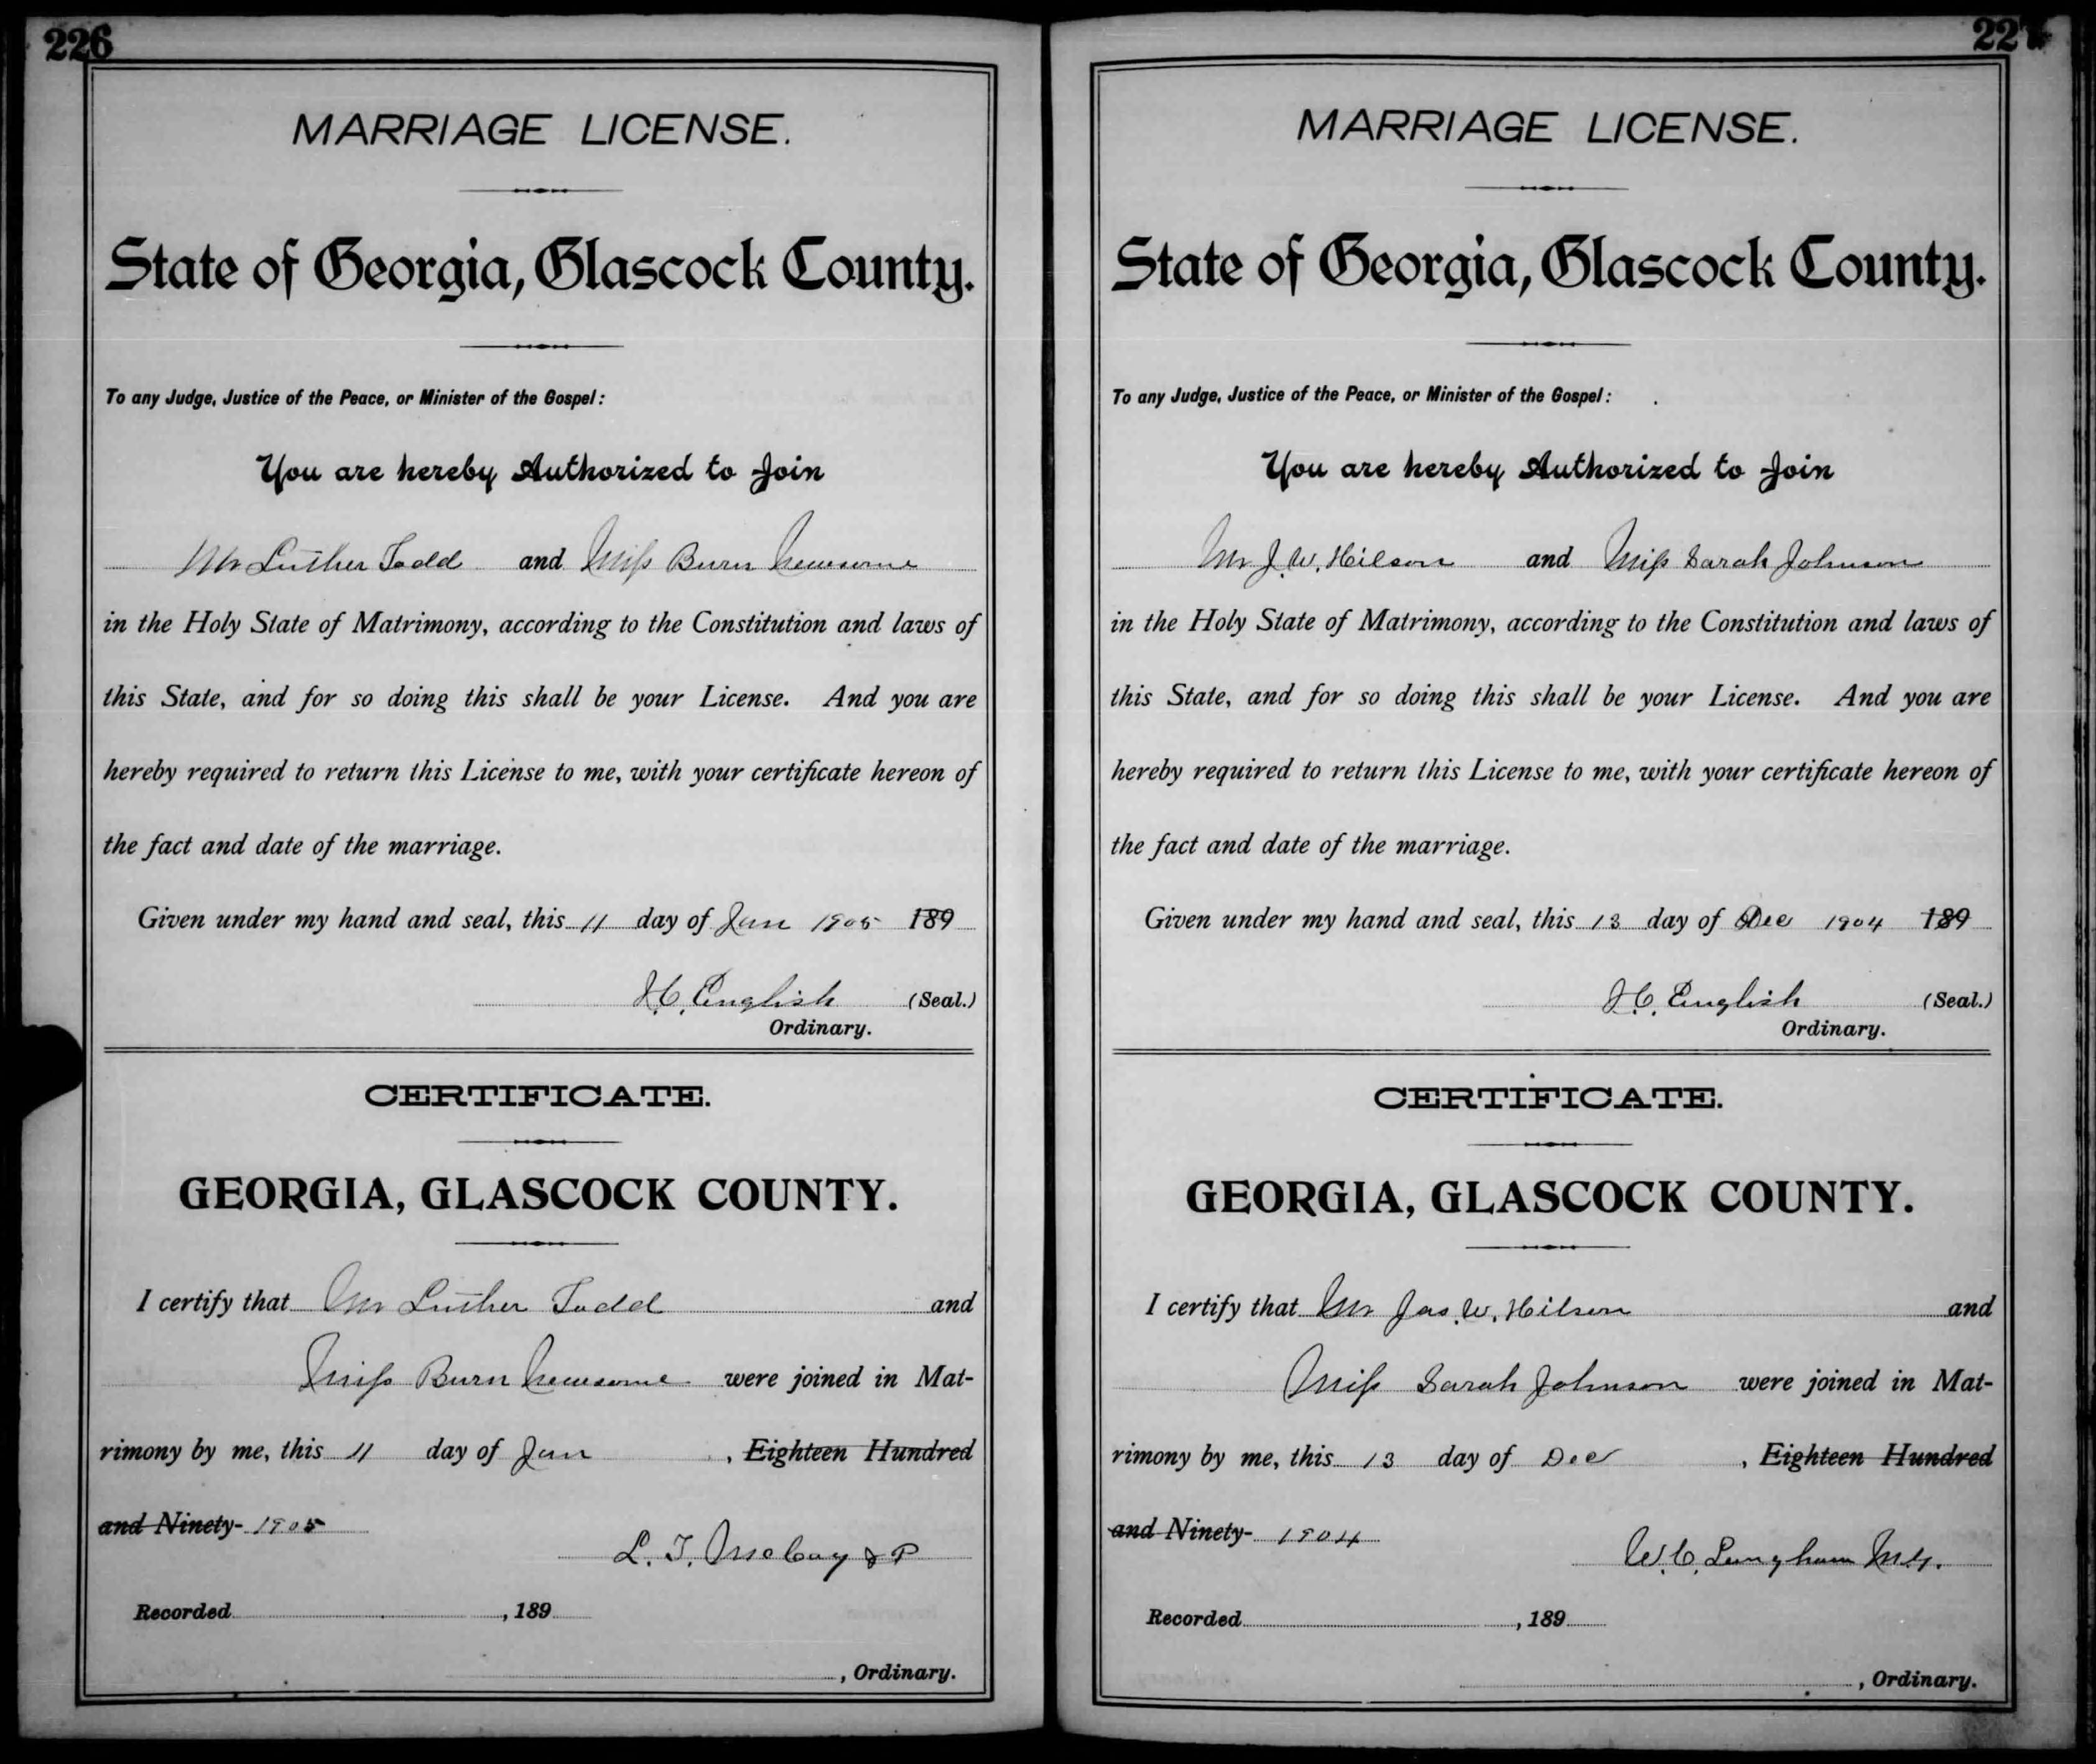 226
MARRIAGE LICENSE.
State of Georgia, Glascock County.
To any Judge, Justice of the Peace, or Minister of the Gospel:
You are hereby Authorized to Join
Mr Luther Todd and Miss Burn Newsome
in the Holy State of Matrimony, according to the Constitution and laws of
this State, and for so doing this shall be your License. And you are
hereby required to return this License to me, with your certificate hereon of
the fact and date of the marriage.
Given under my hand and seal, this 11 day of Jan 1905 189
H.C. English (Seal.)
Ordinary.
CERTIFICATE.
GEORGIA, GLASCOCK COUNTY.
I certify that Mr Luther Todd and
Miss Burn Newsome were joined in Mat-
rimony by me, this 11 day of Jan , Eighteen Hundred
and Ninety- 1905
L. T. P
Recorded , 189
, Ordinary.
227
MARRIAGE LICENSE.
State of Georgia, Glascock County.
To any Judge, Justice of the Peace, or Minister of the Gospel:
You are hereby Authorized to Join
Mr J. W. Hilson and Miss Sarah Johnson
in the Holy State of Matrimony, according to the Constitution and laws of
this State, and for so doing this shall be your License. And you are
hereby required to return this License to me, with your certificate hereon of
the fact and date of the marriage.
Given under my hand and seal, this 13 day of Dec 1904 189
H.C. English (Seal.)
Ordinary.
CERTIFICATE.
GEORGIA, GLASCOCK COUNTY.
I certify that Mr Jas. W. Hilson and
Miss Sarah Johnson were joined in Mat-
rimony by me, this 13 day of Dec , Eighteen Hundred
and Ninety- 1904
W. C.
Recorded , 189
, Ordinary.